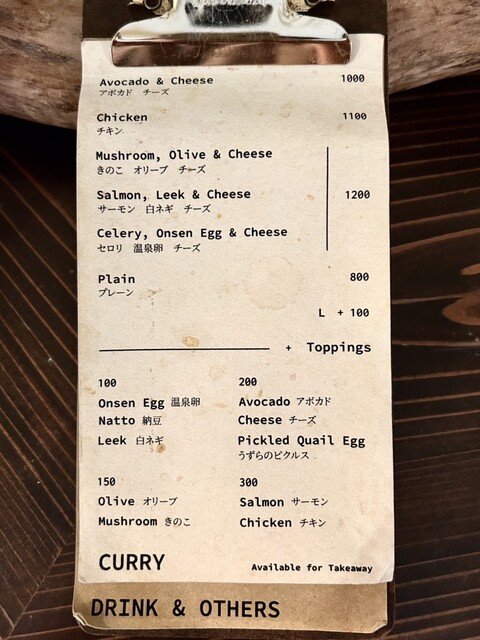 Avocado & Cheese 1000
アボカド チーズ
Chicken 1100
チキン
Mushroom, Olive & Cheese
きのこ オリーブ チーズ
Salmon, Leek & Cheese 1200
サーモン 白ネギ チーズ
Celery, Onsen Egg & Cheese
セロリ 温泉卵 チーズ
Plain 800
プレーン
L + 100
+ Toppings
100
Onsen Egg 温泉卵
Natto 納豆
Leek 白ネギ
200
Avocado アボカド
Cheese チーズ
Pickled Quail Egg
うずらのピクルス
150
Olive オリーブ
Mushroom きのこ
300
Salmon サーモン
Chicken チキン
CURRY Available for Takeaway
DRINK & OTHERS